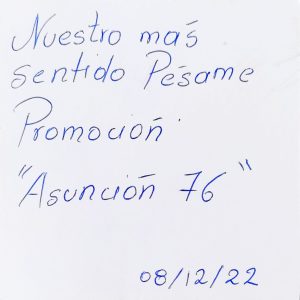 Nuestro más
sentido Pésame
Promoción.
"Asunción 76"
08/12/22